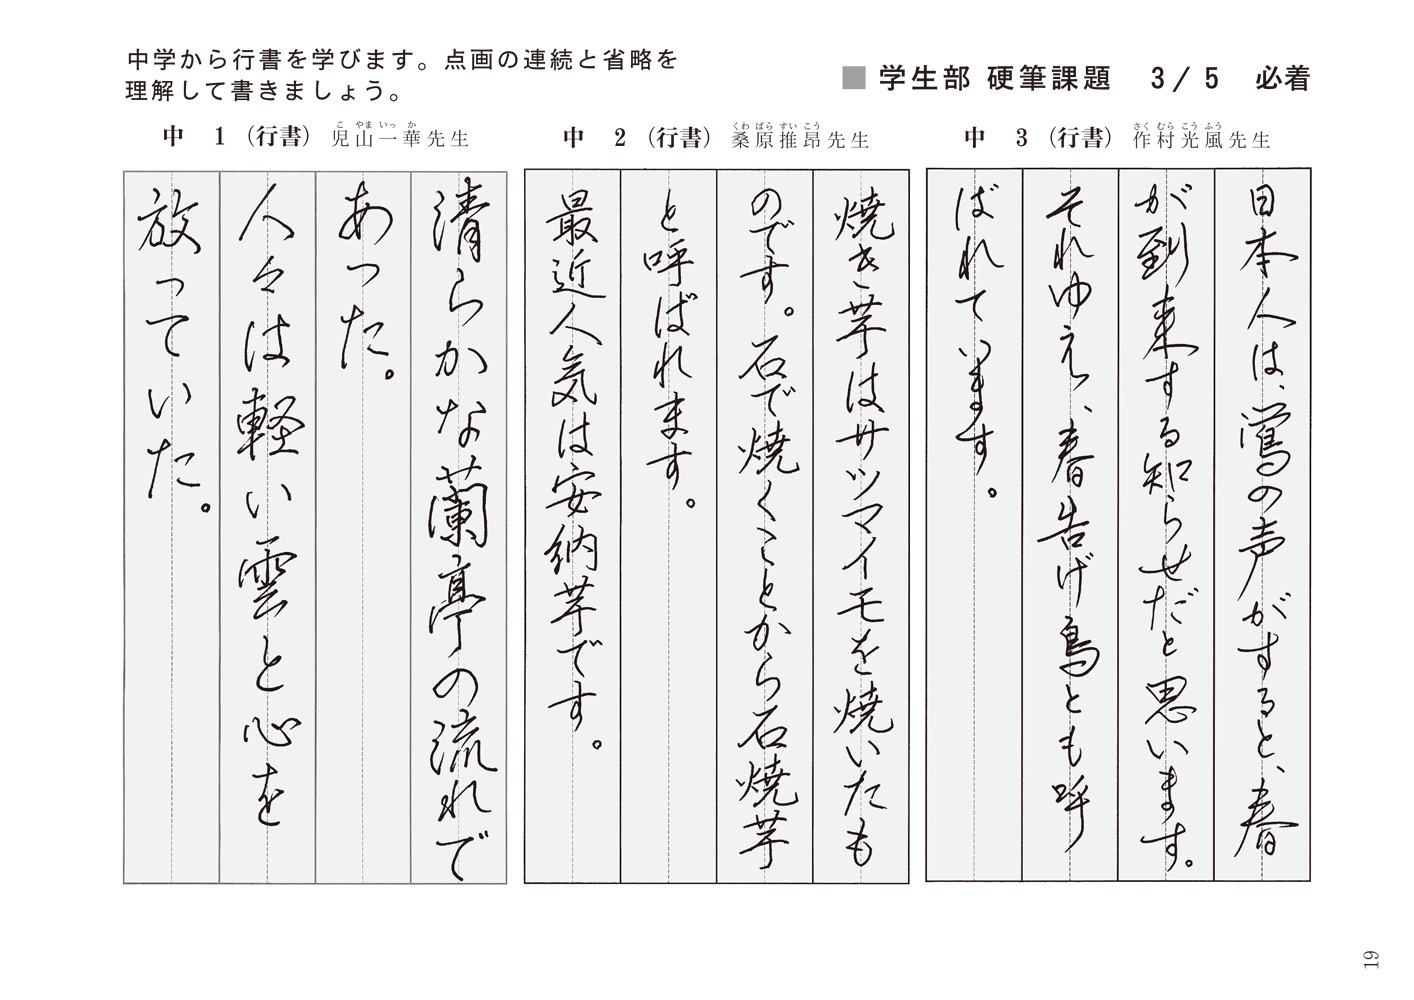 中学から行書を学びます。点画の連続と省略を
理解して書きましょう。
■ 学生部 硬筆課題 3/5 必着
中 3 （行書） 作村光風先生
さく むら こう ふう
日本人は、鶯の声がすると、春
が到来する知らせだと思います。
それゆえ、春告げ鳥とも呼
ばれています。
中 2 （行書） 桑原推昂先生
くわ ばら すい こう
焼き芋はサツマイモを焼いたも
のです。石で焼くことから石焼芋
と呼ばれます。
最近人気は安納芋です。
中 1 （行書） 児山一華先生
こ やま いっ か
清らかな蘭亭の流れで
あった。
人々は軽い雲と心を
放っていた。
19